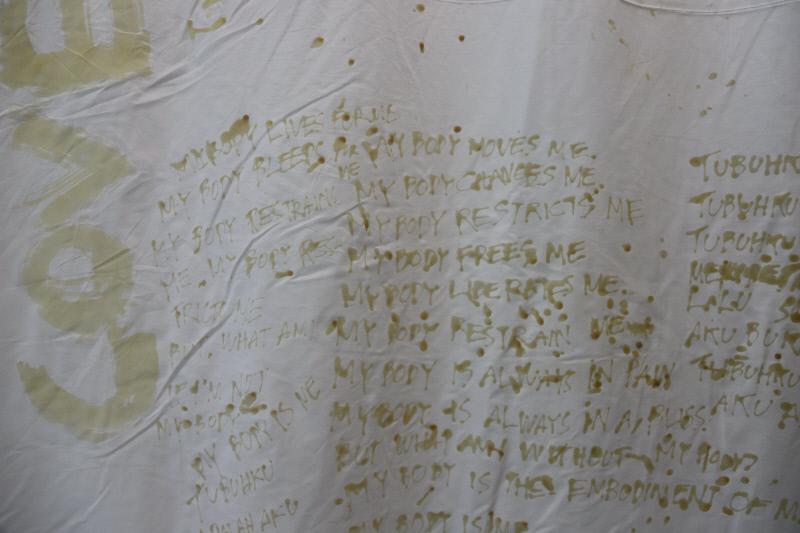 COVE
MY BODY LIVES FOR ME
MY BODY BLEEDS FOR
ME
MY BODY RESTRAINS
ME. MY BODY RES-
TRICTS ME
BUT WHAT AM I
IF I'M NOT
MY BODY?
MY BODY IS ME
TUBUHKU
ADALAH AKU
MY BODY MOVES ME.
MY BODY CHANGES ME.
MY BODY RESTRICTS ME
MY BODY FREES ME
MY BODY LIBERATES ME.
MY BODY RESTRAIN ME
MY BODY IS ALWAYS IN PAIN
MY BODY IS ALWAYS IN A
BUT WHAT AM WITHOUT MY BODY?
MY BODY IS THE EMBODIMENT OF M
MY BODY IS ME
TUBUHK
TUBUHKU
TUBUHKU
LALU
AKU BUK
TUBUHKU
AKU A